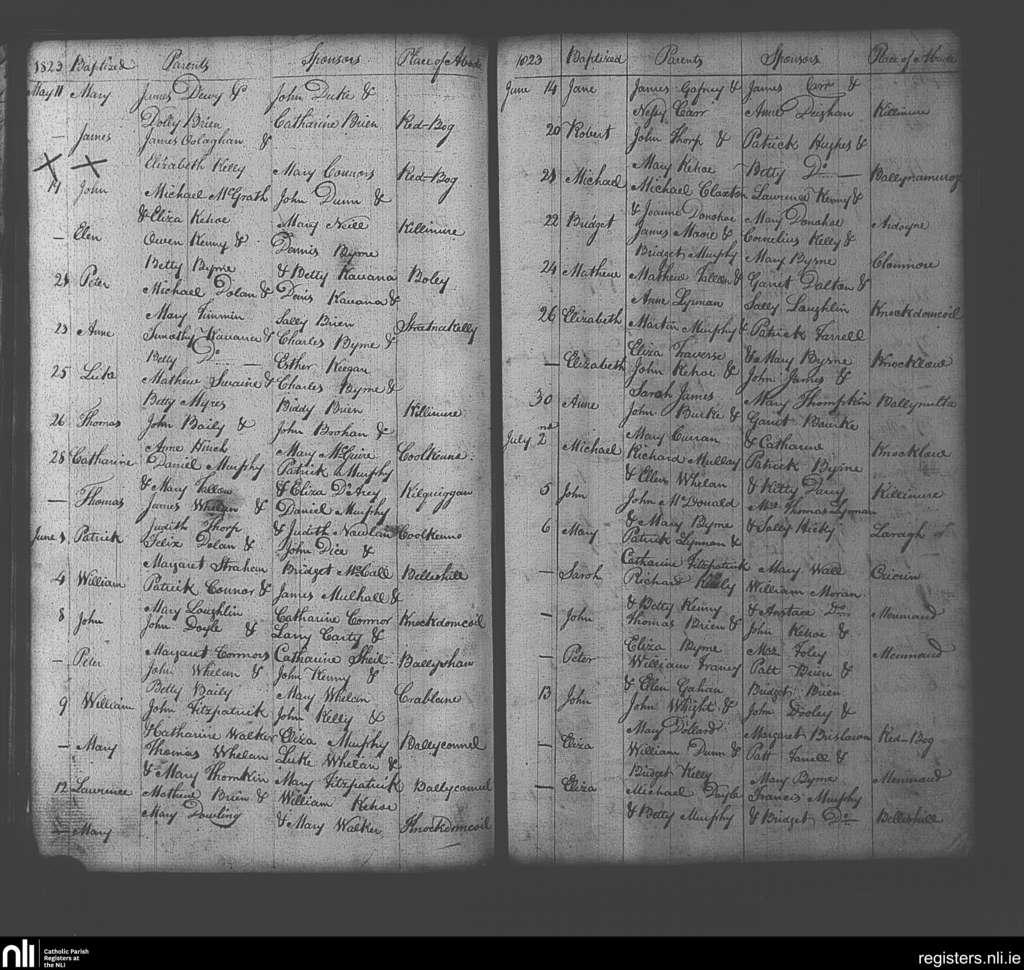 1823 Baptized Parents Sponsors Place of Abode
May 11 Mary James Dewy & John Duke &
Dolly Brien Catharine Brien Red-Bog
— James James Oolaghan &
Elizabeth Kelly Mary Connors Red-Bog
17 John Michael McGrath John Dunn &
& Eliza Kehoe Mary Neill Killinure
— Elen Owen Kenny & Dennis Byrne
Betty Byrne & Betty Kavana Boley
21 Peter Michael Dolan & Denis Kavana &
Mary Timmin Sally Brien StratnaKelly
23 Anne Timothy Kavana & Charles Byrne &
Betty Do — Esther Keegan
25 Luke Mathew Swaine & Charles Byrne &
Betty Myres Biddy Brien Killinure
26 Thomas John Baily & John Broohan &
Anne Hinch Mary McGuire CoolKenna
28 Catharine Daniel Murphy Patrick Murphy
& Mary Fallon & Eliza D'Arcy Kilquiggan
— Thomas James Whelan & Daniel Murphy
Judith Thorp & Judith Nowlan Coolkenno
June 1 Patrick Felix Dolan & John Dice &
Margaret Strahem Bridget McCall Belleshill
4 William Patrick Connor & James Mulhall &
Mary Loughlin Catharine Connor Knockdomcoil
8 John John Doyle & Larry Carty &
Margaret Connors Catharine Sheil Ballyshan
— Peter John Whelan & John Kenny &
Betty Baily Mary Whelan Crablane
9 William John Fitzpatrick John Kelly &
Katharine Walker Eliza Murphy Ballyconnel
— Mary Thomas Whelan Luke Whelan &
& Mary Thomkin Mary Fitzpatrick Ballyconnel
12 Lawrence Mathew Brien & William Kehoe
Mary Dowling & Mary Walker Knockdomcoil
— Mary
1823 Baptized Parents Sponsors Place of Abode
June 14 Jane James Gafney & James Carr &
Nessy Carr Anne Deighan Killinure
20 Robert John Thorp & Patrick Hughes &
Mary Kehoe Betty Do — Ballynamurog
21 Michael Michael Claxton Lawrence Kenny &
& Joanne Donohoe Mary Donohoe Ardoyne
22 Bridget James Moore & Cornelius Kelly &
Bridget Murphy Mary Byrne Clonmore
24 Mathew Mathew Fallon & Garret Dalton &
Anne Lynnan Sally Laughlin Knockdomcoil
26 Elizabeth Martin Murphy & Patrick Farrell
Eliza Traverse & Mary Byrne Knockloue
— Elizabeth John Kehoe & John James &
Sarah James Mary Thompkin Ballynulta
30 Anne John Burke & Garret Bourke
Mary Curran & Catharine Knockloue
July 2nd Michael Richard Mullay Patrick Byrne
& Ellen Whelan & Kitty Darcy Killinure
5 John John McDonald Mrs Thomas Lynnan
& Mary Byrne & Sally Hicky Laragh
6 Mary Patrick Lynnan &
Catharine Fitzpatrick Mary Wall Cricrin
— Sarah Richard Kelly William Moran
& Betty Kenny & Anstace Do Munnaud
— John Thomas Brien & John Kehoe &
Eliza Byrne Mrs Foley Munnaud
— Peter William Traney Patt Brien &
& Ellen Gahan Bridget Brien
13 John John Whight & John Dooley &
Mary Dollard Margaret Brislawn Red-Bog
— Eliza William Dunn & Patt Farrell &
Bridget Kelly Mary Byrne Munnaud
— Eliza Michael Doyle Francis Murphy
& Betty Murphy & Bridget Do Belleshill
nli
Catholic Parish
Registers at
the NLI
registers.nli.ie